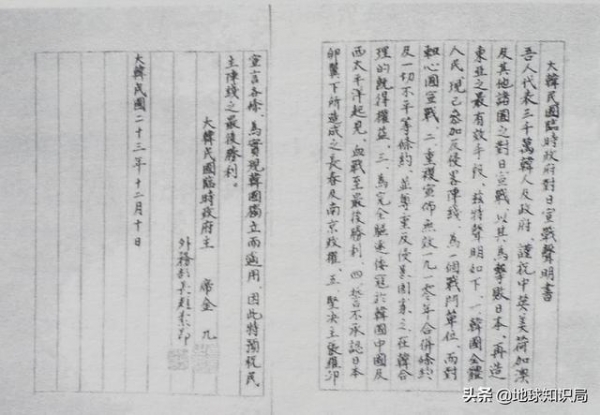 大韓民國臨時政府對日宣戰聲明書
吾人代表三千萬韓人及政府、謹祝中英美荷加澳
及其他諸國之對日宣戰、以其為擊敗日本、再造
東亞之最有效手段、茲特聲明如下、一韓國全體
人民、現已參加反侵畧陣綫、為一個戰鬥單位、而對
軸心國宣戰、二、重複宣佈無效一九一零年合併條約
及一切不平等條約、並尊重反侵畧國家之在韓合
理的既得權益、三、為完全驅逐倭寇於韓國中國及
西太平洋起見、血戰至最後勝利、四、誓不承認日本
卵翼下所造成之長春及南京政權、五、堅決主張羅邱
宣言各條、為實現韓國獨立而適用、因此特預祝民
主陣綫之最後勝利。
大韓民國臨時政府主席金九
外務部長趙素昂
大韓民國二十三年十二月十日
头条 @地球知识局